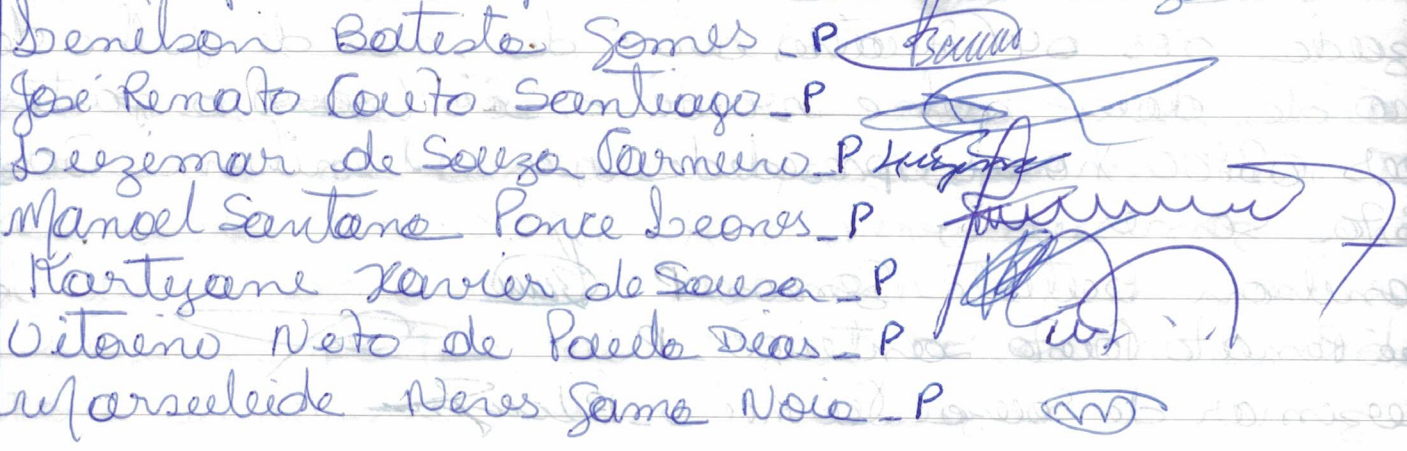 Denilson Batista Gomes - P
José Renato Couto Santiago - P
Luzimar de Souza Carneiro - P
Manoel Santana Ponce Leones - P
Kartyane Xavier de Sousa - P
Vitorino Neto de Paula Dias - P
Marsuleide Neves Gama Noia - P